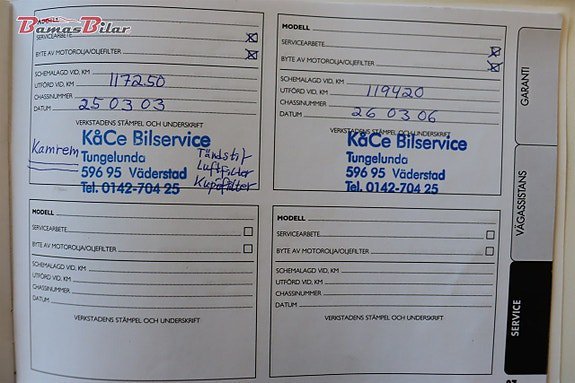 BAMASBILAR
MODELL
SERVICEARBETE
BYTE AV MOTOROLJA/OLJEFILTER
SCHEMALAGD VID, KM
UTFÖRD VID, KM 117250
CHASSINUMMER
DATUM 25 03 03
VERKSTADENS STÄMPEL OCH UNDERSKRIFT
KåCe Bilservice
Tungelunda
596 95 Väderstad
Tel. 0142-704 25
Kamrem
Tändstif
Luftfilter
Kupéfilter
MODELL
SERVICEARBETE
BYTE AV MOTOROLJA/OLJEFILTER
SCHEMALAGD VID, KM
UTFÖRD VID, KM 119420
CHASSINUMMER
DATUM 26 03 06
VERKSTADENS STÄMPEL OCH UNDERSKRIFT
KåCe Bilservice
Tungelunda
596 95 Väderstad
Tel. 0142-704 25
MODELL
SERVICEARBETE
BYTE AV MOTOROLJA/OLJEFILTER
SCHEMALAGD VID, KM
UTFÖRD VID, KM
CHASSINUMMER
DATUM
VERKSTADENS STÄMPEL OCH UNDERSKRIFT
MODELL
SERVICEARBETE
BYTE AV MOTOROLJA/OLJEFILTER
SCHEMALAGD VID, KM
UTFÖRD VID, KM
CHASSINUMMER
DATUM
VERKSTADENS STÄMPEL OCH UNDERSKRIFT
GARANTI
VÄGASSISTANS
SERVICE